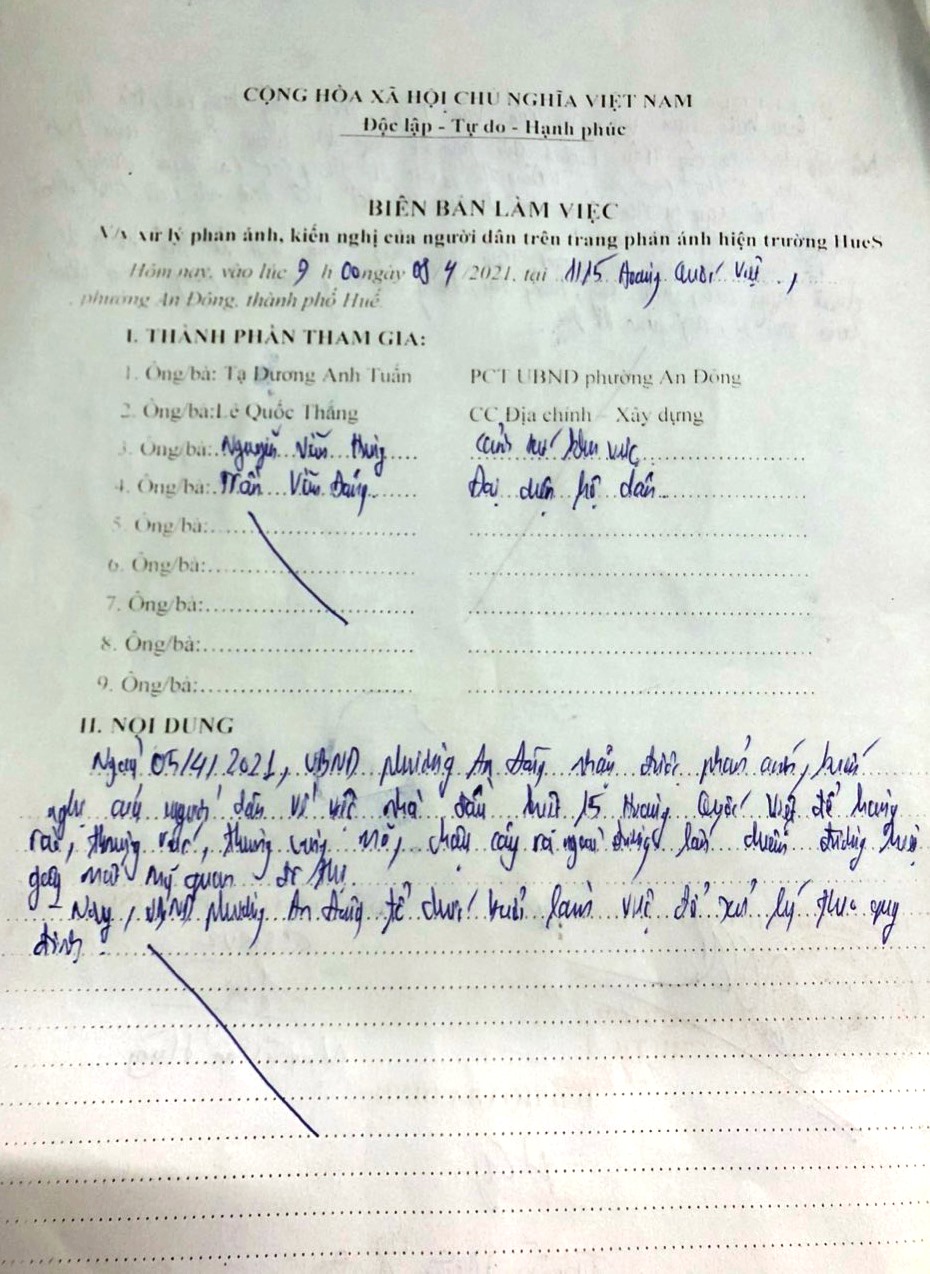 CỘNG HÒA XÃ HỘI CHỦ NGHĨA VIỆT NAM
Độc lập - Tự do - Hạnh phúc
BIÊN BẢN LÀM VIỆC
V/v xử lý phản ánh, kiến nghị của người dân trên trang phản ánh hiện trường HueS
Hôm nay, vào lúc 9 h 00 ngày 08/4/2021, tại 11/15 Hoàng Quốc Việt,
phường An Đông, thành phố Huế.
I. THÀNH PHẦN THAM GIA:
1. Ông/bà: Tạ Dương Anh Tuấn PCT UBND phường An Đông
2. Ông/bà: Lê Quốc Thắng CC Địa chính – Xây dựng
3. Ông/bà: Nguyễn Văn khu vực
4. Ông/bà: Trần Văn Đại diện hộ dân
5. Ông/bà:
6. Ông/bà:
7. Ông/bà:
8. Ông/bà:
9. Ông/bà:
II. NỘI DUNG
Ngày 05/4/2021, UBND phường An Đông nhận được phản ánh, kiến
nghị của người dân về việc nhà đầu kiệt 15 Hoàng Quốc Việt để hàng
rào, thùng rác, thùng chậu cây ra ngoài đường lấn chiếm đường kiệt
gây mất mỹ quan đô thị.
- Nay, UBND phường An Đông tổ chức buổi làm việc để xử lý theo quy
định.